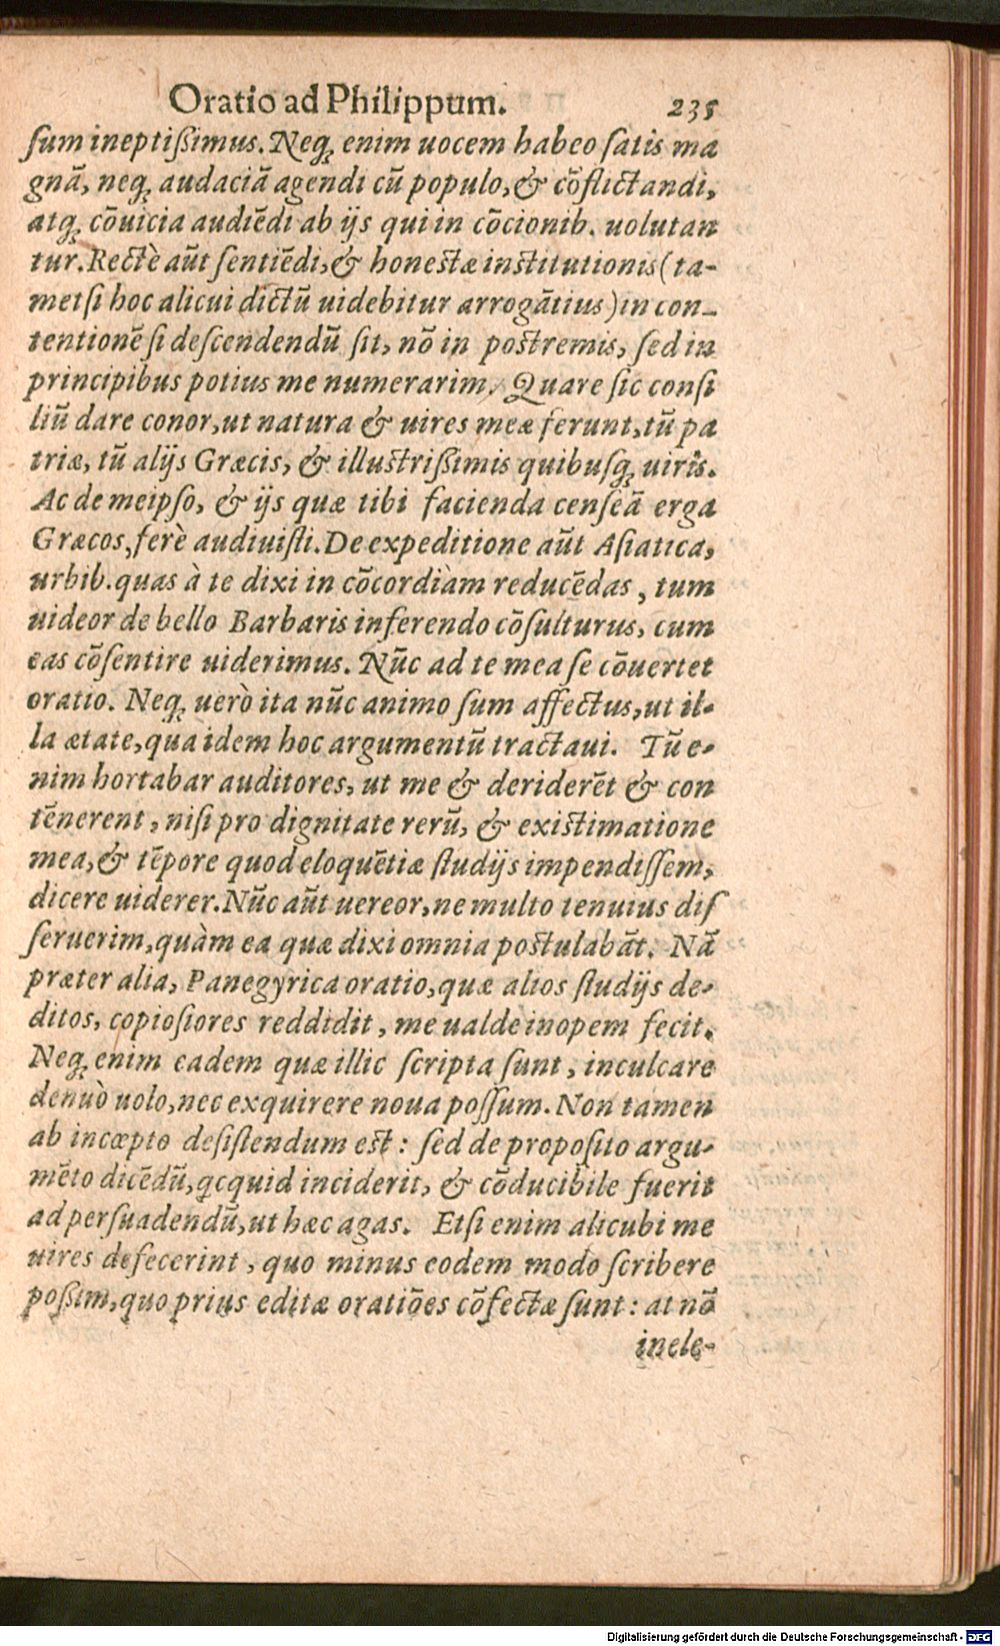 Oratio ad Philippum. 235
sum ineptißimus. Neq; enim uocem habeo satis ma
gnã, neq; audaciã agendi cũ populo, & cõflictandi,
atq; cõuicia audiẽdi ab ijs qui in cõcionib. uolutan
tur. Rectè aũt sentiẽdi, & honestæ institutionis (ta-
metsi hoc alicui dictũ uidebitur arrogãtius) in con-
tentionẽ si descendendũ sit, nõ in postremis, sed in
principibus potius me numerarim. Quare sic consi
liũ dare conor, ut natura & uires meæ ferunt, tũ pa
triæ, tũ alijs Græcis, & illustrißimis quibusq; uiris.
Ac de meipso, & ijs quæ tibi facienda censeã erga
Græcos, ferè audiuisti. De expeditione aũt Asiatica,
urbib. quas à te dixi in cõcordiam reducẽdas, tum
uideor de bello Barbaris inferendo cõsulturus, cum
eas cõsentire uiderimus. Nũc ad te mea se cõuertet
oratio. Neq; uerò ita nũc animo sum affectus, ut il-
la ætate, qua idem hoc argumentũ tractaui. Tũ e-
nim hortabar auditores, ut me & deriderẽt & con
tẽnerent, nisi pro dignitate rerũ, & existimatione
mea, & tẽpore quod eloquẽtiæ studijs impendissem,
dicere uiderer. Nũc aũt uereor, ne multo tenuius dis
seruerim, quàm ea quæ dixi omnia postulabãt. Nã
præter alia, Panegyrica oratio, quæ alios studijs de-
ditos, copiosiores reddidit, me ualde inopem fecit.
Neq; enim eadem quæ illic scripta sunt, inculcare
denuò uolo, nec exquirere noua possum. Non tamen
ab incœpto desistendum est: sed de proposito argu-
mẽto dicẽdũ, qcquid inciderit, & cõducibile fuerit
ad persuadendũ, ut hæc agas. Etsi enim alicubi me
uires defecerint, quo minus eodem modo scribere
poßim, quo prius editæ oratiões cõfectæ sunt: at nõ
inele-
Digitalisierung gefördert durch die Deutsche Forschungsgemeinschaft - DFG